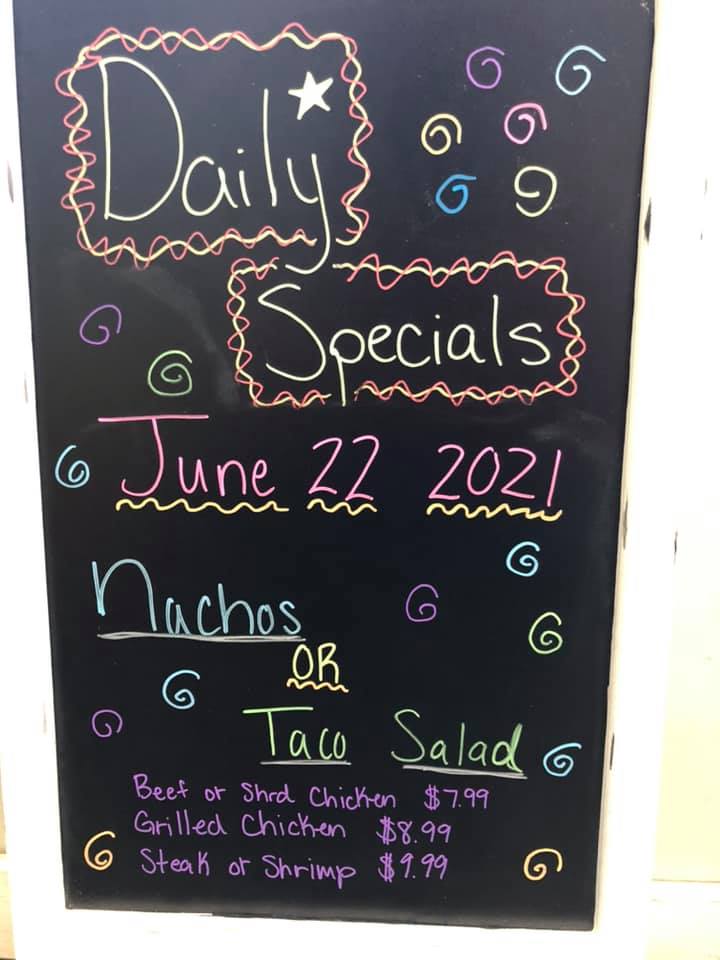 Daily
Specials
June 22 2021
Nachos
OR
Taco Salad
Beef or Shrd Chicken $7.99
Grilled Chicken $8.99
Steak or Shrimp $9.99